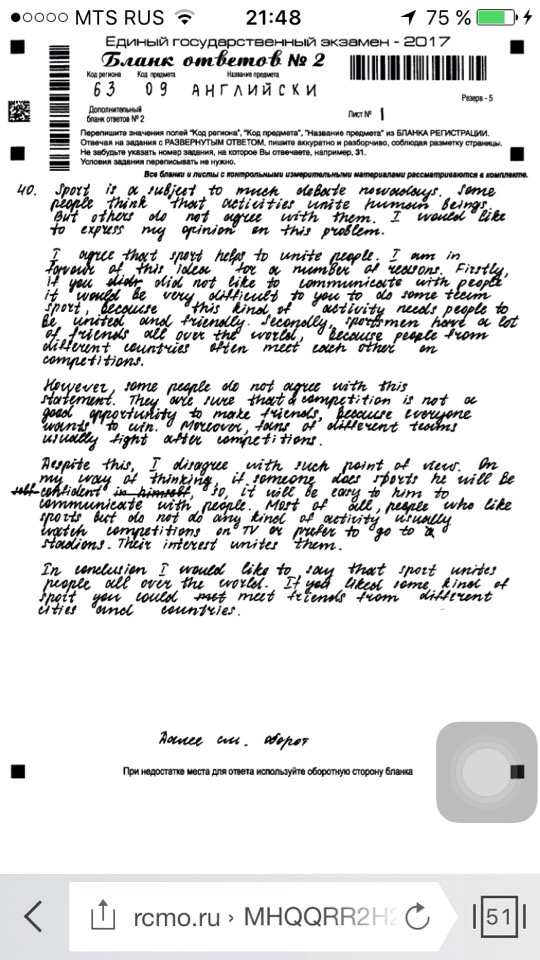 MTS RUS 21:48 75 %
Единый государственный экзамен - 2017
Бланк ответов № 2
Код региона Код предмета Название предмета
63 09 АНГЛИЙСКИ
Резерв - 5
Дополнительный
бланк ответов № 2
Лист № 1
Перепишите значения полей "Код региона", "Код предмета", "Название предмета" из БЛАНКА РЕГИСТРАЦИИ.
Отвечая на задания с РАЗВЕРНУТЫМ ОТВЕТОМ, пишите аккуратно и разборчиво, соблюдая разметку страницы.
Не забудьте указать номер задания, на которое Вы отвечаете, например, 31.
Условия задания переписывать не нужно.
Все бланки и листы с контрольными измерительными материалами рассматриваются в комплекте.
40. Sport is a subject to much debate nowadays. Some
people think that activities unite human beings.
But others do not agree with them. I would like
to express my opinion on this problem.
I agree that sport helps to unite people. I am in
favour of this idea for a number of reasons. Firstly,
if you did not like to communicate with people
it would be very difficult to you to do some team
sport, because this kind of activity needs people to
be united and friendly. Secondly, sportsmen have a lot
of friends all over the world, because people from
different countries often meet each other on
competitions.
However, some people do not agree with this
statement. They are sure that a competition is not a
good opportunity to make friends, because everyone
wants to win. Moreover, fans of different teams
usually fight after competitions.
Despite this, I disagree with such point of view. On
my way of thinking, if someone does sports he will be
self confident in himself, so, it will be easy to him to
communicate with people. Most of all, people who like
sports but do not do any kind of activity usually
watch competitions on TV or prefer to go to a
stadions. Their interest unites them.
In conclusion I would like to say that sport unites
people all over the world. If you liked some kind of
sport you could meet friends from different
cities and countries.
Далее см. оборот
При недостатке места для ответа используйте оборотную сторону бланка
rcmo.ru › MHQQRR2H2
51